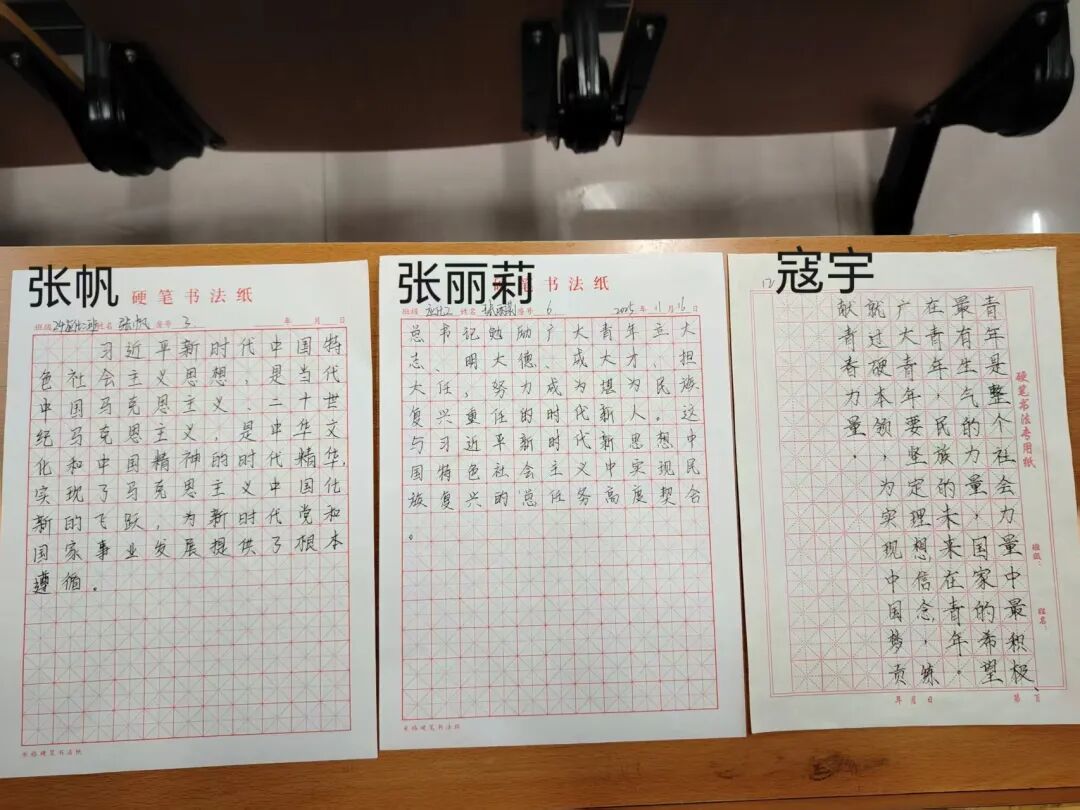 张帆
硬笔书法纸
姓名 张帆 座号 3 年 月 日
习近平新时代中国特
色社会主义思想，是当代
中国马克思主义、二十世
纪马克思主义，是中华文
化和中国精神的时代精华，
实现了马克思主义中国化
新的飞跃，为新时代党和
国家事业发展提供了根本
遵循。
米格硬笔书法纸
张丽莉
硬笔书法纸
班级 姓名 张丽莉 座号 6 2025年11月16日
总书记勉励广大青年立大
志、明大德、成大才、担
大任，努力成为堪为民族
复兴重任的时代新人。这
与习近平新时代新思想中
国特色社会主义中实现民
族复兴的总任务高度契合
。
米格硬笔书法纸
寇宇
硬笔书法专用纸
班级：
姓名：
青年是整个社会力量中最积极、
最有生气的力量，国家的希望
在青年，民族的未来在青年。
广大青年要坚定理想信念，练
就过硬本领，为实现中国梦贡
献青春力量。
年 月 日
第 页